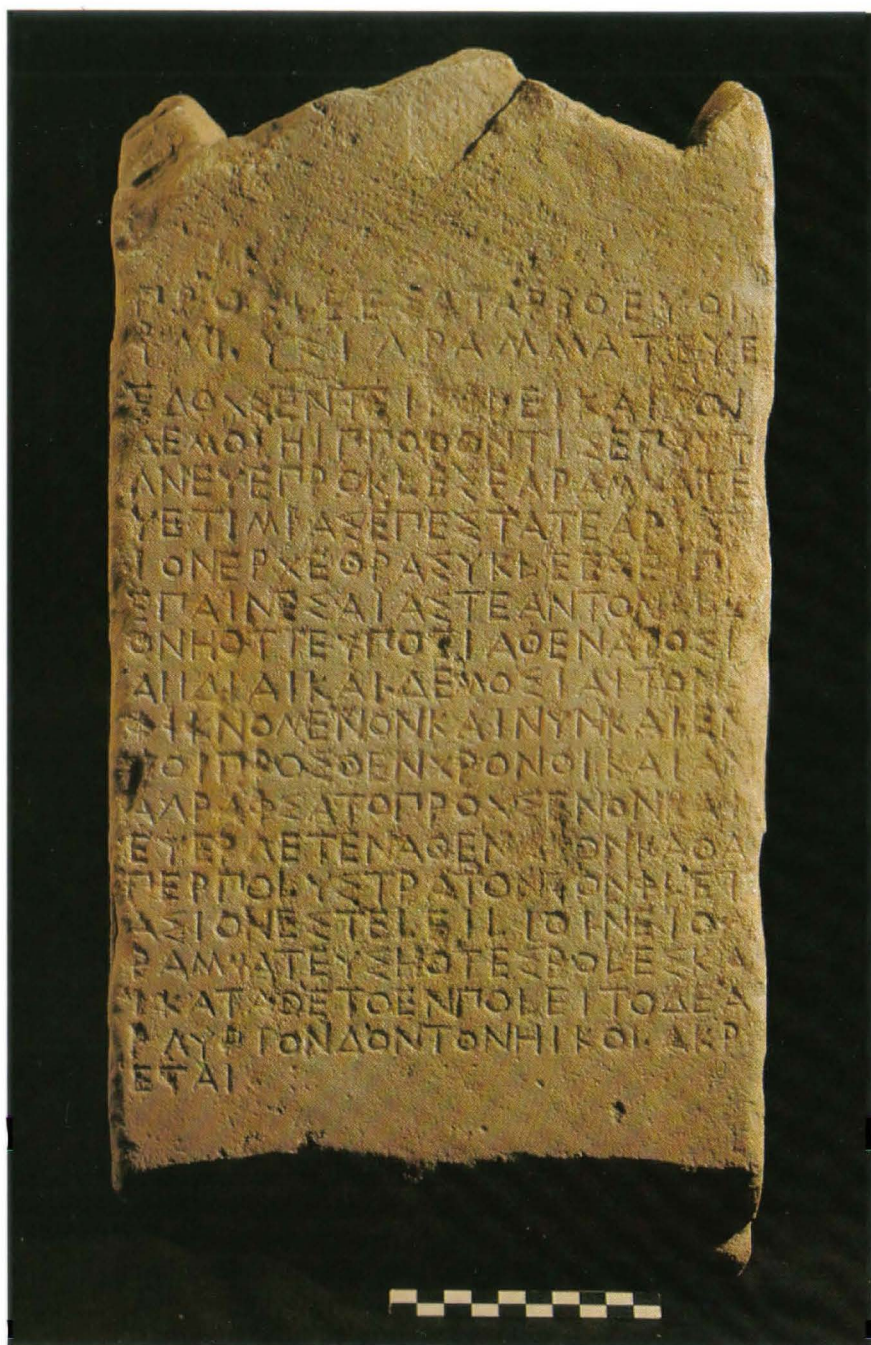 ΠΡΟΚΛΕΕΣΑΤΑΡΒΟΕΥΟΝ
ΥΜΕΥΣΕΓΡΑΜΜΑΤΕΥΕ
ΕΔΟΧΣΕΝΤΕΙΒΟΛΕΙΚΑΙΤΟΙ
ΔΕΜΟΙΗΙΠΠΟΘΟΝΤΙΣΕΠΡΥΤ
ΑΝΕΥΕΠΡΟΚΛΕΣΕΓΡΑΜΜΑΤΕ
ΥΕΤΙΜΙΑΣΕΠΕΣΤΑΤΕΑΡΙΣΤ
ΙΟΝΕΡΧΕΘΡΑΣΥΚΛΕΕΣΕΙΠΕ
ΕΠΑΙΝΕΣΑΙΑΣΤΕΑΝΤΟΝΑΛΕ
ΟΝΗΟΤΙΕΥΠΟΕΙΑΘΕΝΑΙΟΣΚ
ΑΙΙΔΙΑΙΚΑΙΔΕΜΟΣΙΑΙΤΟΝΑ
ΦΙΚΝΟΜΕΝΟΝΚΑΙΝΥΝΚΑΙΕΝ
ΤΟΙΠΡΟΣΘΕΝΧΡΟΝΟΙΚΑΙΑΝ
ΑΓΡΑΦΣΑΤΟΠΡΟΧΣΕΝΟΝΚΑΙ
ΕΥΕΡΓΕΤΕΝΑΘΕΝΑΙΟΝΚΑΘΑ
ΠΕΡΠΟΛΥΣΤΡΑΤΟΝΤΟΝΦΛΕΙ
ΑΣΙΟΝΕΣΤΕΛΕΙΛΙΘΙΝΕΙΟΓ
ΡΑΜΜΑΤΕΥΣΗΟΤΕΣΒΟΛΕΣΚΑ
ΙΚΑΤΑΘΕΤΟΕΝΠΟΛΕΙΤΟΔΕΑ
ΡΓΥΡΙΟΝΔΟΝΤΟΝΗΙΚΟΛΑΚΡ
ΕΤΑΙ